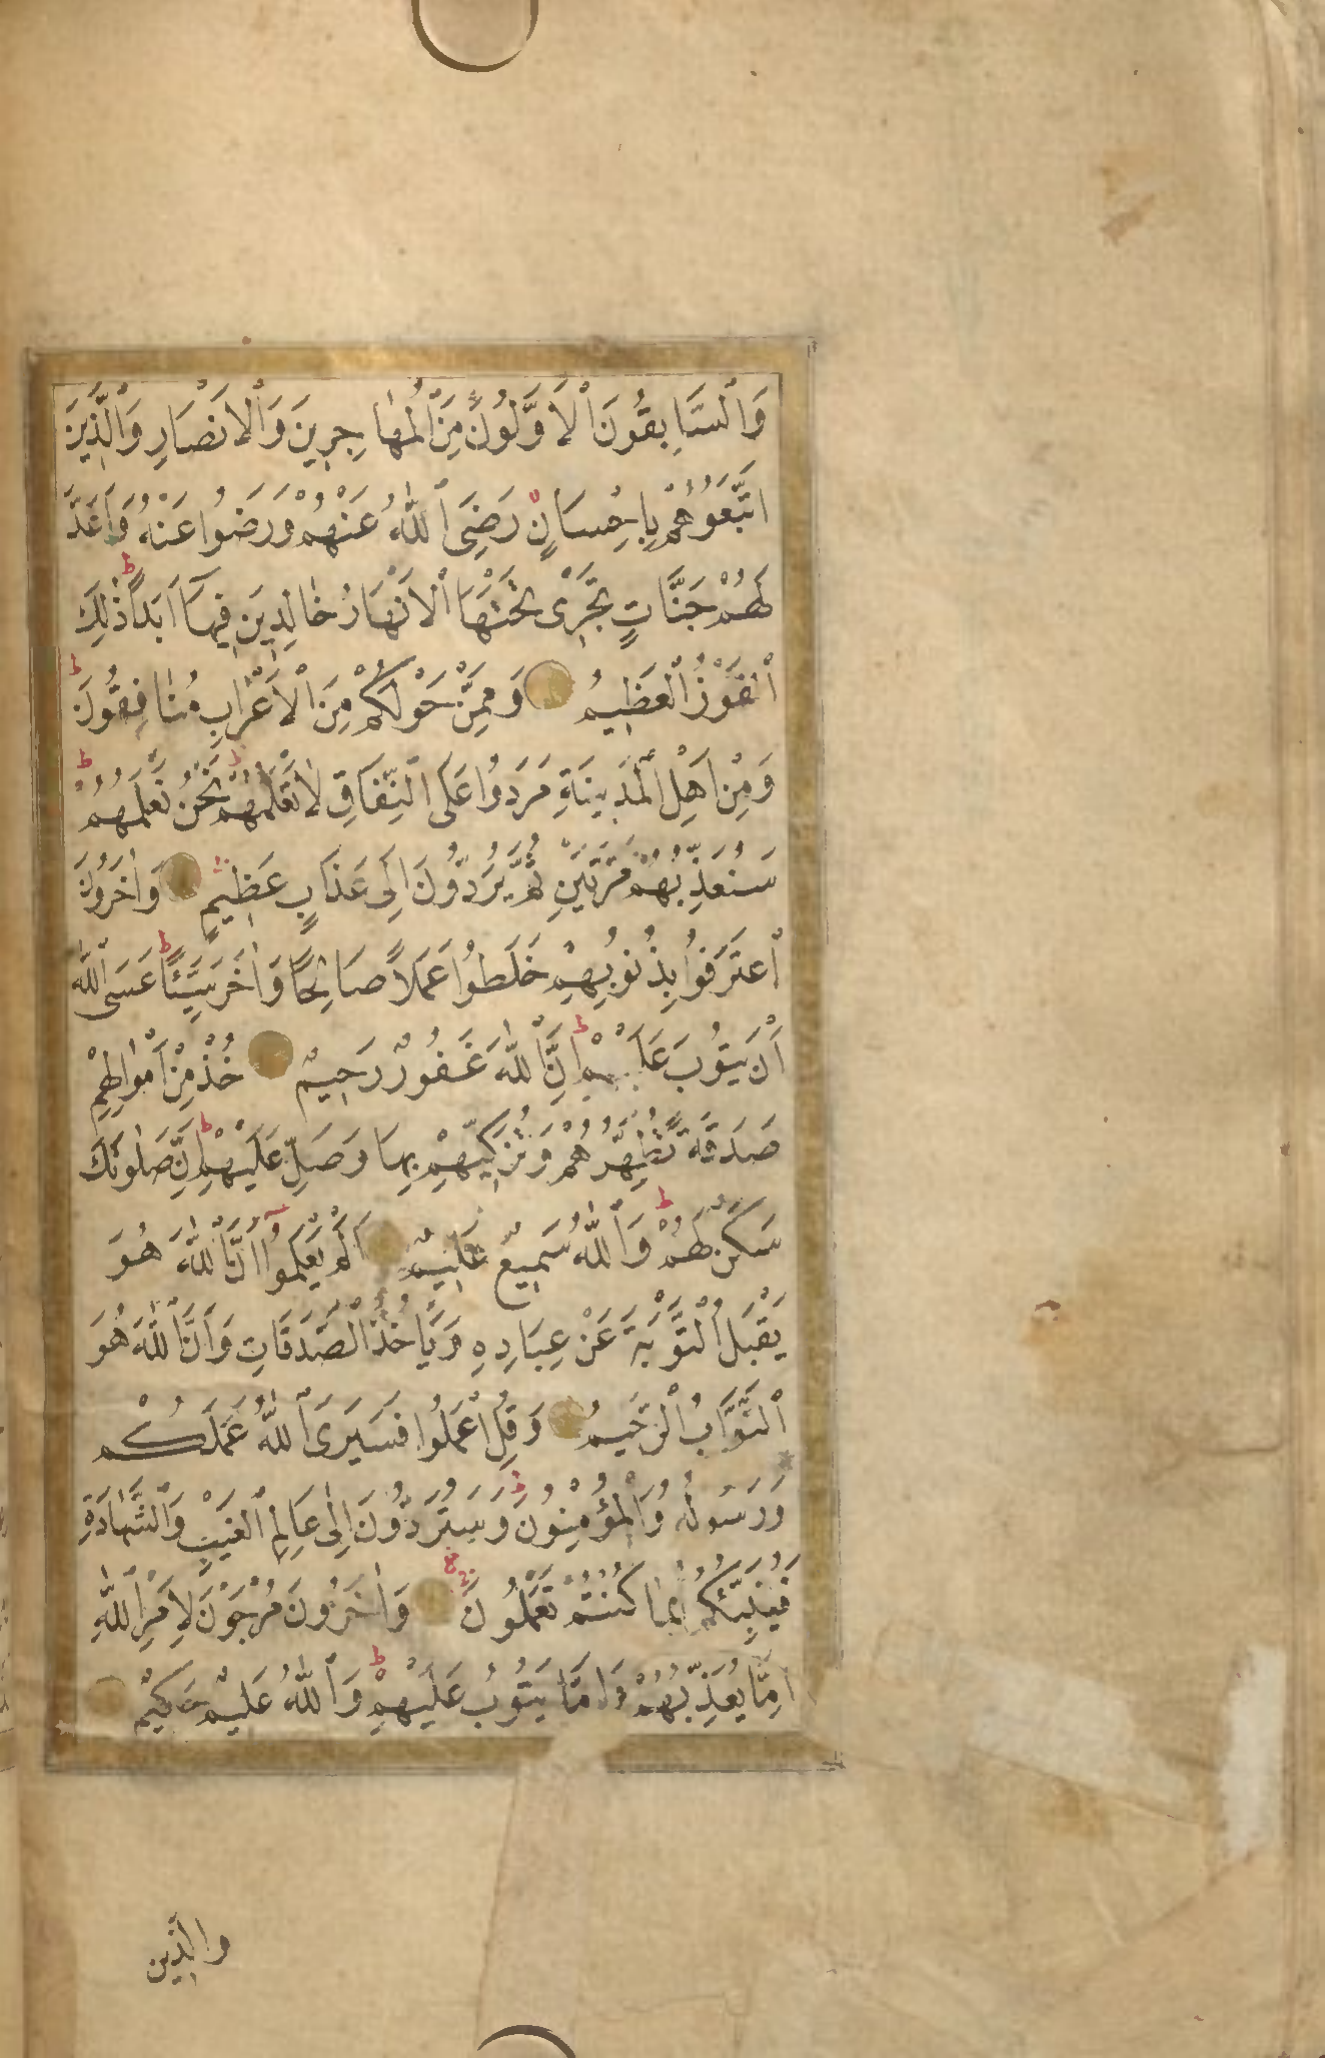 وَالسَّابِقُونَ الْاَوَّلُونَ مِنَ الْمُهٰاجِرِينَ وَالْاَنْصَارِ وَالَّذِينَ
اتَّبَعُوهُمْ بِاِحْسَانٍ رَضِىَ اللّٰهُ عَنْهُمْ وَرَضُوا عَنْهُ وَاَعَدَّ
لَهُمْ جَنَّاتٍ تَجْرِى تَحْتَهَا الْاَنْهَارُ خٰالِدِينَ فِيهَا اَبَدًا ط ذٰلِكَ
الْفَوْزُ الْعَظِيمُ وَمِمَّنْ حَوْلَكُمْ مِنَ الْاَعْرَابِ مُنٰافِقُونَ ط
وَمِنْ اَهْلِ الْمَدِينَةِ مَرَدُوا عَلَى النِّفَاقِ لَا تَعْلَمُهُمْ ط نَحْنُ نَعْلَمُهُمْ ط
سَنُعَذِّبُهُمْ مَرَّتَيْنِ ثُمَّ يُرَدُّونَ اِلٰى عَذَابٍ عَظِيمٍ وَاٰخَرُونَ
اعْتَرَفُوا بِذُنُوبِهِمْ خَلَطُوا عَمَلًا صَالِحًا وَاٰخَرَ سَيِّئًا ط عَسَى اللّٰهُ
اَنْ يَتُوبَ عَلَيْهِمْ ط اِنَّ اللّٰهَ غَفُورٌ رَحِيمٌ خُذْ مِنْ اَمْوٰالِهِمْ
صَدَقَةً تُطَهِّرُهُمْ وَتُزَكِّيهِمْ بِهَا وَصَلِّ عَلَيْهِمْ ط اِنَّ صَلٰوتَكَ
سَكَنٌ لَهُمْ ط وَاللّٰهُ سَمِيعٌ عَلِيمٌ اَلَمْ يَعْلَمُوا اَنَّ اللّٰهَ هُوَ
يَقْبَلُ التَّوْبَةَ عَنْ عِبَادِهِ وَيَاْخُذُ الصَّدَقَاتِ وَاَنَّ اللّٰهَ هُوَ
التَّوَّابُ الرَّحِيمُ وَقُلِ اعْمَلُوا فَسَيَرَى اللّٰهُ عَمَلَكُمْ
وَرَسُولُهُ وَالْمُؤْمِنُونَ ط وَسَتُرَدُّونَ اِلٰى عَالِمِ الْغَيْبِ وَالشَّهٰادَةِ
فَيُنَبِّئُكُمْ بِمَا كُنْتُمْ تَعْمَلُونَ وَاٰخَرُونَ مُرْجَوْنَ لِاَمْرِ اللّٰهِ
اِمَّا يُعَذِّبُهُمْ وَاِمَّا يَتُوبُ عَلَيْهِمْ ط وَاللّٰهُ عَلِيمٌ حَكِيمٌ
والذين